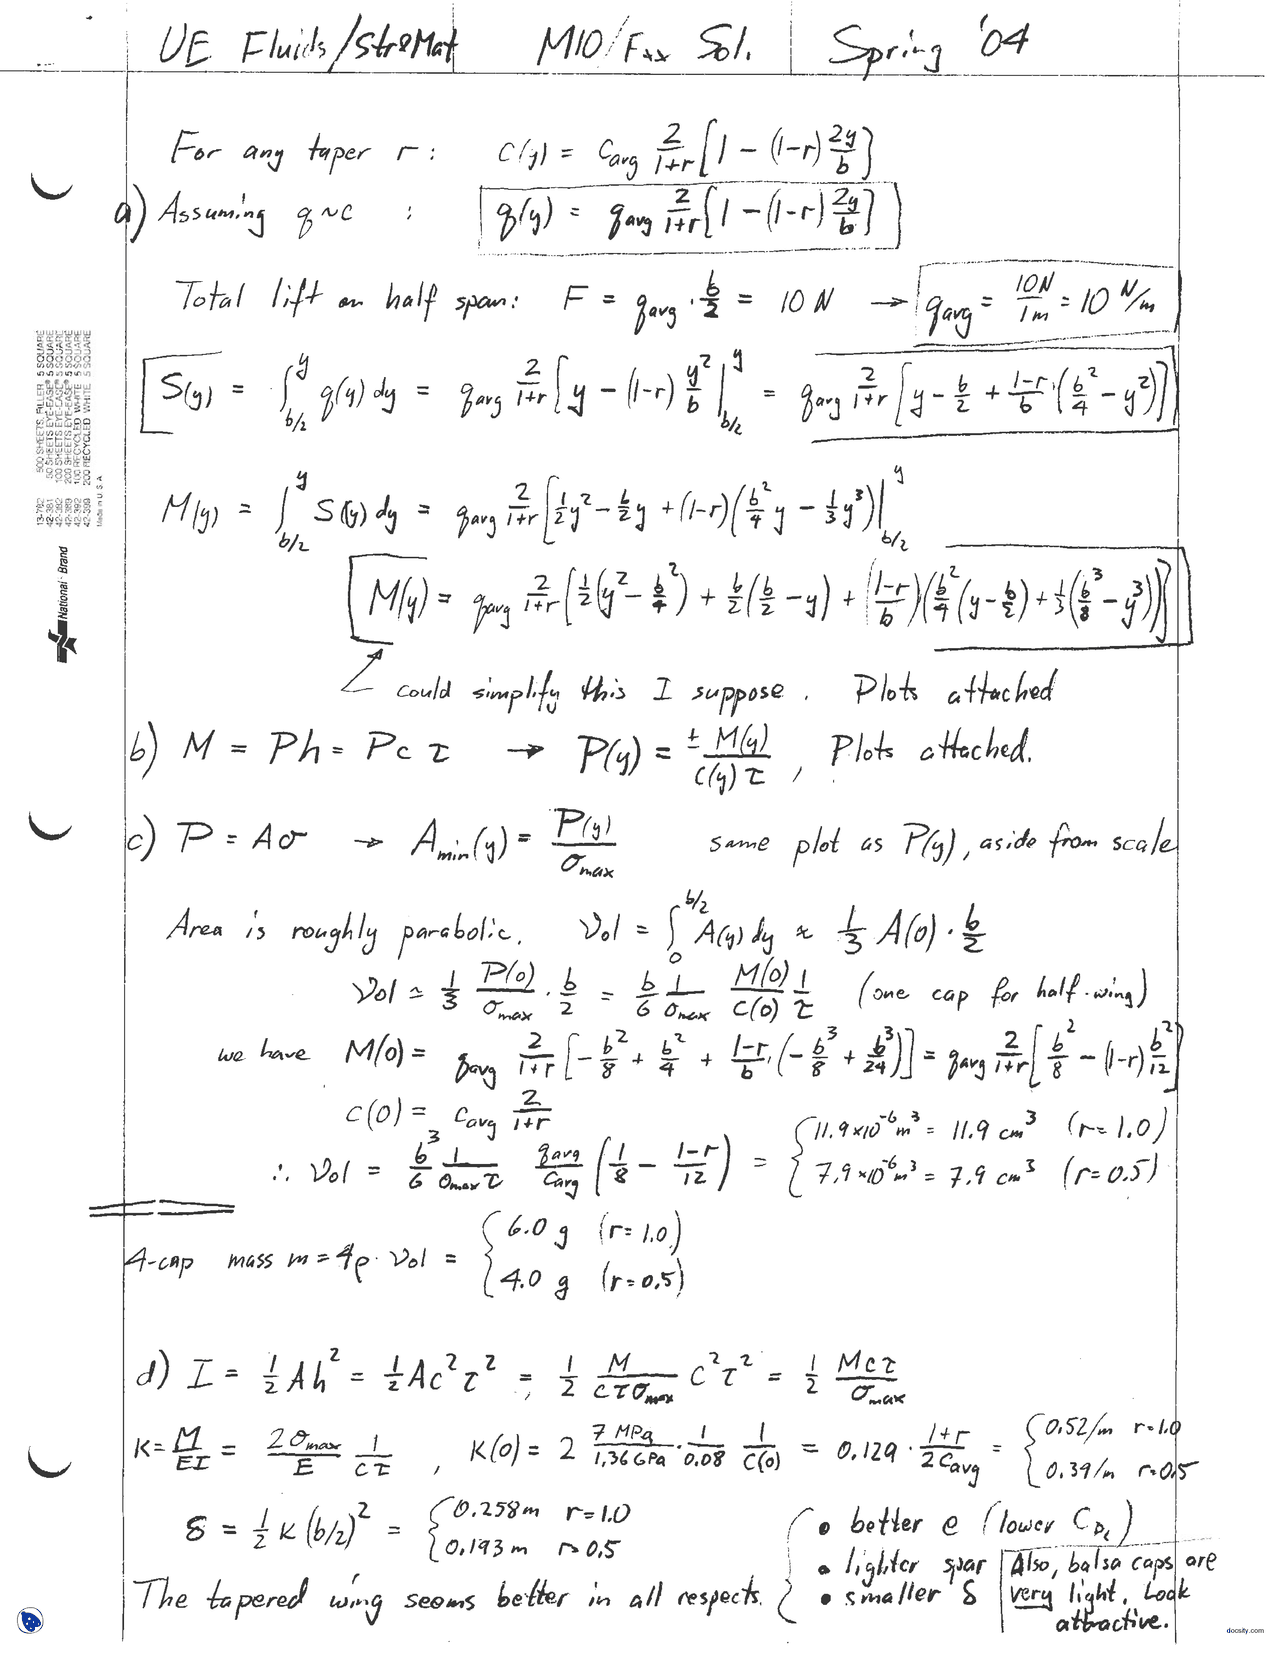 UE Fluids/Str&Mat M10/Fxx Sol. Spring '04
For any taper r: c(y) = c_avg 2/(1+r) [1 - (1-r) 2y/b]
a) Assuming q~c : q(y) = q_avg 2/(1+r) [1 - (1-r) 2y/b]
Total lift on half span: F = q_avg · b/2 = 10 N → q_avg = 10N/1m = 10 N/m
S(y) = ∫_{b/2}^{y} q(y) dy = q_avg 2/(1+r) [y - (1-r) y²/b |_{b/2}^{y} = q_avg 2/(1+r) [y - b/2 + (1-r)/b · (b²/4 - y²)]
M(y) = ∫_{b/2}^{y} S(y) dy = q_avg 2/(1+r) [½y² - b/2 y + (1-r)(b²/4 y - ⅓y³)|_{b/2}^{y}
M(y) = q_avg 2/(1+r) [½(y² - b²/4) + b/2(b/2 - y) + ((1-r)/b)(b²/4(y - b/2) + ⅓(b³/8 - y³))]
could simplify this I suppose. Plots attached
b) M = Ph = Pcτ → P(y) = ± M(y)/(c(y)τ), Plots attached.
c) P = Aσ → A_min(y) = P(y)/σ_max same plot as P(y), aside from scale
Area is roughly parabolic. Vol = ∫_0^{b/2} A(y) dy ≈ ⅓ A(0) · b/2
Vol ≃ ⅓ P(0)/σ_max · b/2 = b/6 1/σ_max M(0)/c(0) 1/τ (one cap for half-wing)
we have M(0) = q_avg 2/(1+r) [-b²/8 + b²/4 + (1-r)/b · (-b³/8 + b³/24)] = q_avg 2/(1+r) [b²/8 - (1-r) b²/12]
c(0) = c_avg 2/(1+r)
∴ Vol = b³/6 1/(σ_max τ) q_avg/c_avg (1/8 - (1-r)/12) = { 11.9×10⁻⁶m³ = 11.9 cm³ (r=1.0)
7.9×10⁻⁶m³ = 7.9 cm³ (r=0.5)
4-cap mass m = 4ρ·Vol = { 6.0 g (r=1.0)
4.0 g (r=0.5)
d) I = ½Ah² = ½Ac²τ² = ½ M/(cτσ_max) c²τ² = ½ Mcτ/σ_max
K = M/EI = 2σ_max/E 1/(cτ), K(0) = 2 7 MPa/1.36 GPa · 1/0.08 1/c(0) = 0.129 · (1+r)/(2c_avg) = { 0.52/m r=1.0
0.39/m r=0.5
δ = ½K(b/2)² = { 0.258m r=1.0
0.193m r=0.5
The tapered wing seems better in all respects.
• better e (lower C_Di)
• lighter spar
• smaller δ
Also, balsa caps are
very light. Look
attractive.
13-782 500 SHEETS, FILLER 5 SQUARE
42-381 50 SHEETS EYE-EASE® 5 SQUARE
42-382 100 SHEETS EYE-EASE® 5 SQUARE
42-389 200 SHEETS EYE-EASE® 5 SQUARE
42-392 100 RECYCLED WHITE 5 SQUARE
42-399 200 RECYCLED WHITE 5 SQUARE
Made in U.S.A.
National® Brand
docsity.com